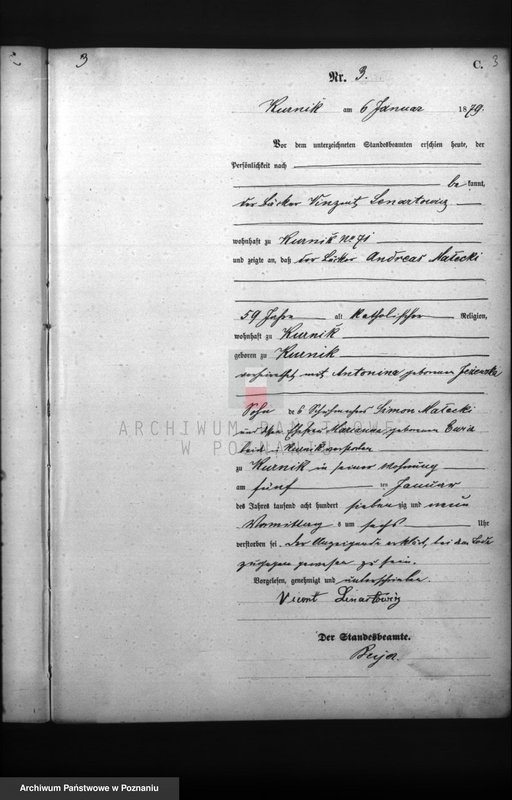 3
C. 3
Nr. 3.
Kurnik am 6 Januar 1879.
Vor dem unterzeichneten Standesbeamten erschien heute, der
Persönlichkeit nach
be kannt,
der Bäcker Vinzent Lenartowicz
wohnhaft zu Kurnik No 71
und zeigte an, daß der Bäcker Andreas Małecki
59 Jahre alt katholischer Religion,
wohnhaft zu Kurnik
geboren zu Kurnik
verheirathet mit Antonina geborenen
Sohn des Simon Małecki
und Marianna geborene
Kurnik verstorben
zu Kurnik in seiner Wohnung
am fünf ten Januar
des Jahres tausend acht hundert sieben zig und neun
Vormittag s um sechs Uhr
verstorben sei. Der Anzeigende erklärt, bei dem Tode
zugegen gewesen zu sein.
Vorgelesen, genehmigt und unterschrieben.
Lenartowicz
Der Standesbeamte.
ARCHIWUM PAŃSTWOWE
W POZNANIU
Archiwum Państwowe w Poznaniu